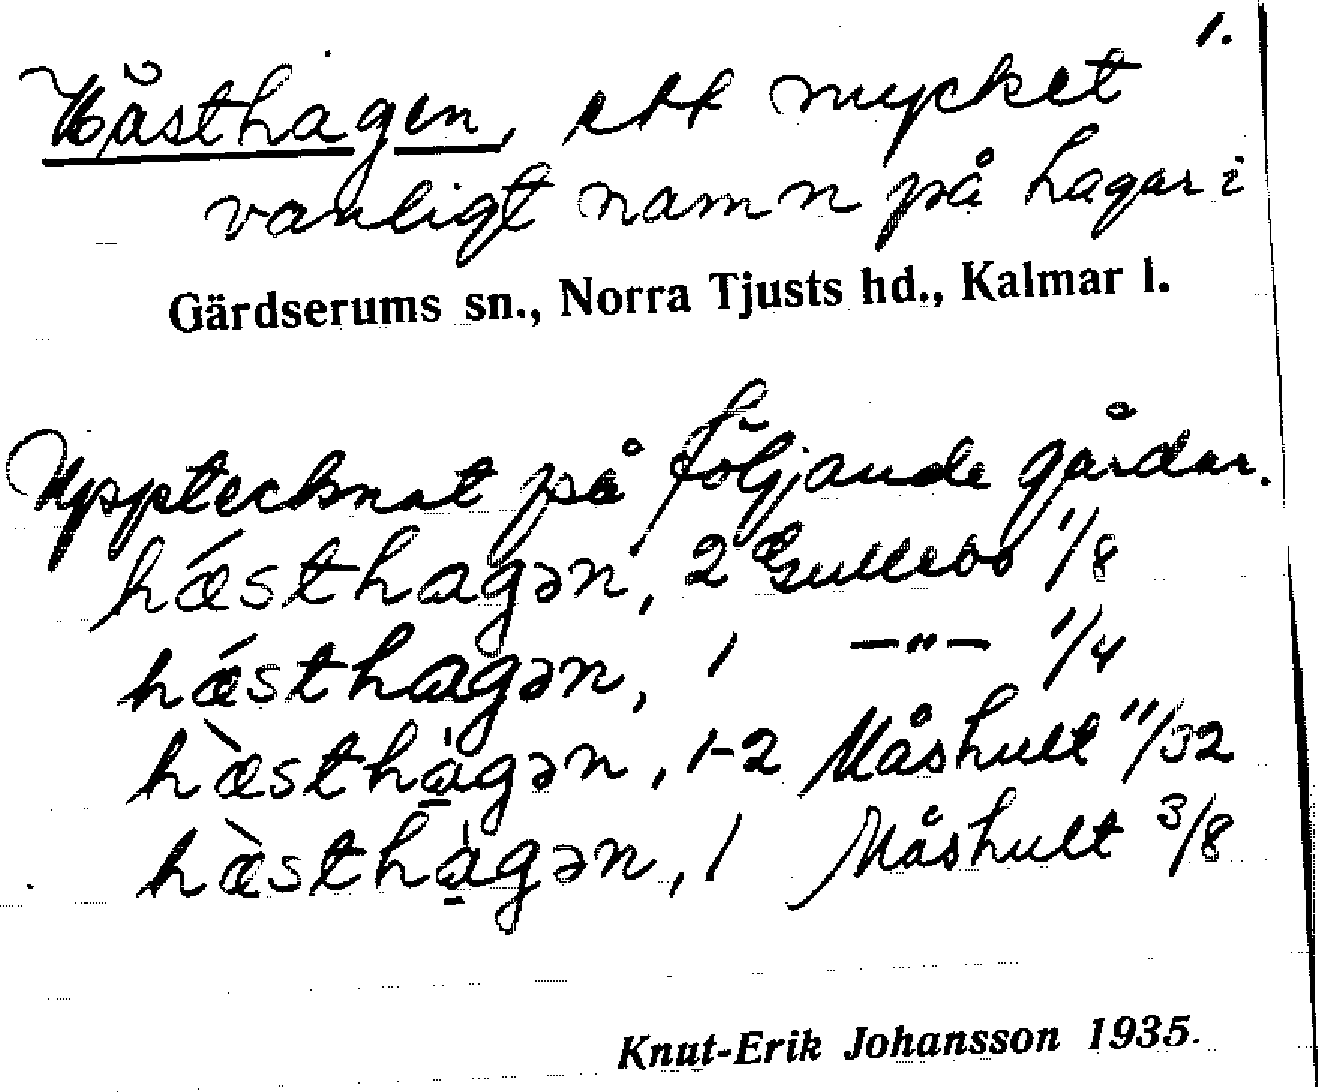 1.
Hästhagen, ett mycket
vanligt namn på hagar i
Gärdserums sn., Norra Tjusts hd., Kalmar l.
Upptecknat på följande gårdar.
hǽsthagən, 2 Gullebo 1/8
hǽsthagən, 1 —"— 1/4
hæ̀sthà̱gən, 1-2 Måshult 11/32
hæ̀sthà̱gən, 1 Måshult 3/8
Knut-Erik Johansson 1935.